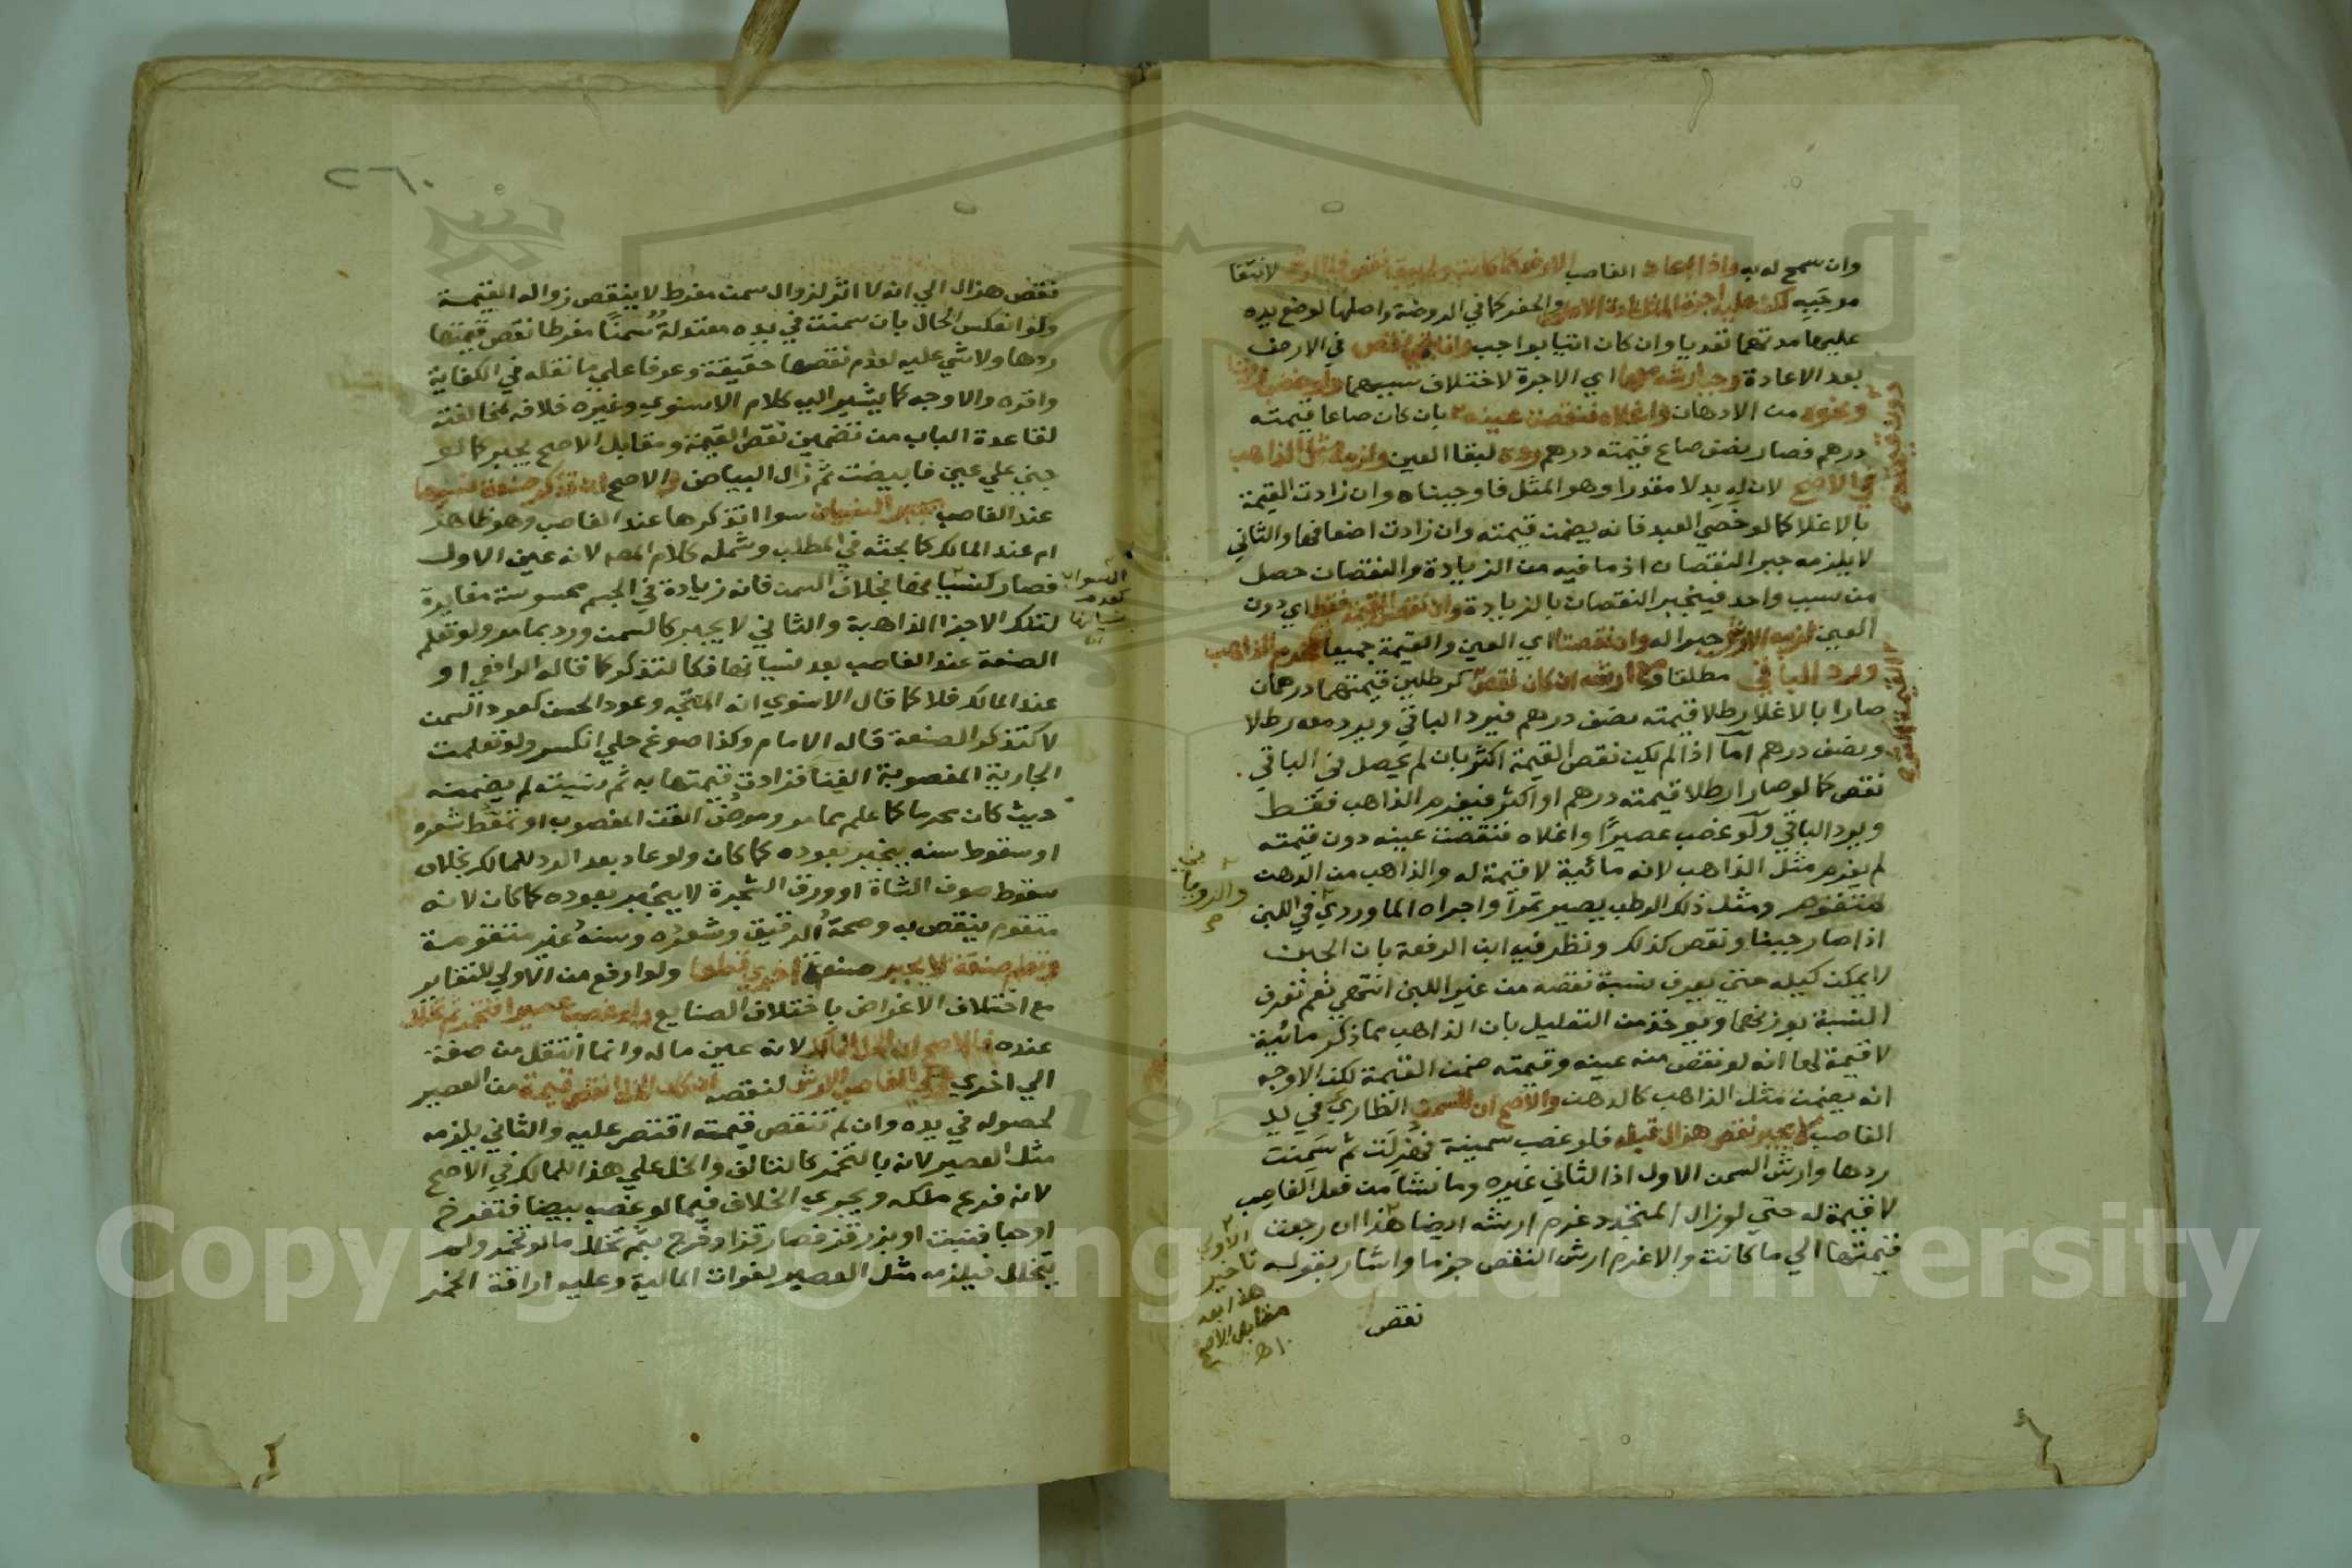 وان سمح له به واذا اعاد الغاصب الارض كما كانت ولم يبق نقص فلا ارش لانتفا
موجبه لكن عليه اجرة المثل لمدة الاعادة والحفر كما في الروضة واصلها لوضع يده
عليها مدتهما تعديا وان كان اتيا بواجب وان بقي نقص في الارض
بعد الاعادة وجب ارشه معها اي الاجرة لاختلاف سببهما ولو غصب زيتا
ونحوه من الادهان واغلاه فنقصت عينه بان كان صاعا قيمته
درهم فصار نصف صاع قيمته درهم رده لبقا العين ولزمه مثل الذاهب
في الاصح لان له بدلا مقدرا وهو المثل فاوجبناه وان زادت القيمة
بالاغلا كما لو خصي العبد فانه يضمن قيمته وان زادت اضعافها والثاني
لا يلزمه جبر النقصان اذ ما فيه من الزيادة والنقصان حصل
من سبب واحد فينجبر النقصان بالزيادة وان نقصت القيمة فقط اي دون
العين لزمه الارش جبرا له وان نقصتا اي العين والقيمة جميعا غرم الذاهب
ورد الباقي مطلقا ومع ارشه ان كان نقص كرطلين قيمتهما درهمان
صارا بالاغلا رطلا قيمته نصف درهم فيرد الباقي ويرد معه رطلا
ونصف درهم اما اذا لم يكن نقص القيمة اكثر بان لم يحصل في الباقي
نقص كما لو صارا رطلا قيمته درهم او اكثر فيغرم الذاهب فقط
ويرد الباقي ولو غصب عصيرا واغلاه فنقصت عينه دون قيمته
لم يغرم مثل الذاهب لانه مائية لا قيمة له والذاهب من الدهن
متقوم ومثل ذلك الرطب يصير تمرا واجراه الماوردي في اللبن
اذا صار جبنا ونقص كذلك ونظر فيه ابن الرفعة بان الجبن
لا يمكن كيله حتى يعرف نسبة نقصه من غير اللبن انتهي نعم تعرف
النسبة بوزنهما ويوخذ من التعليل بان الذاهب مما ذكر مائية
لا قيمة لها انه لو نقص منه عينه وقيمته ضمن القيمة لكن الاوجه
انه يضمن مثل الذاهب كالدهن والاصح ان السمن الطاري في يد
الغاصب لا يجبر نقص هزال قبله فلو غصب سمينة فهزلت ثم سمنت
ردها وارش السمن الاول اذ الثاني غيره وما نشا من فعل الغاصب
لا قيمة له حتي لو زال المتجدد غرم ارشه ايضا هذا ان رجعت
قيمتها الي ما كانت والا غرم ارش النقص جزما واشار بقوله
نقص
والروياني
الاولي
تاخير
هذا بعد
مقابل الاصح
اه
٢٦٠
نقص هزال الي انه لا اثر لزوال سمن مفرط لا ينقص زواله القيمة
ولو انعكس الحال بان سمنت في يده معتدلة سمنا مفرطا نقص قيمتها
ردها ولا شي عليه لعدم نقصها حقيقة وعرفا علي ما نقله في الكفاية
واقره والاوجه كما يشير اليه كلام الاسنوي وغيره خلافه لمخالفته
لقاعدة الباب من تضمين نقص القيمة ومقابل الاصح يجبر كما لو
جني علي عين فابيضت ثم زال البياض والاصح ان تذكر صنعة نسيها
عند الغاصب يجبر النسيان سوا اتذكرها عند الغاصب وهو ظاهر
ام عند المالك كما بحثه في المطلب وشمله كلام المصه لانه عين الاول
فصار كنسيانها بخلاف السمن فانه زيادة في الجسم محسوسة مغايرة
لتلك الاجزا الذاهبة والثاني لا يجبر كالسمن ورد بما مر ولو تعلم
الصنعة عند الغاصب بعد نسيانها فكالتذكر كما قاله الرافعي او
عند المالك فلا كما قال الاسنوي انه المتجه وعود الحسن كعود السمن
لا كتذكر الصنعة قاله الامام وكذا صوغ حلي انكسر ولو تعلمت
الجارية المغصوبة الغنا فزادت قيمتها به ثم نسيته لم يضمنه
حيث كان محرما كما علم مما مر ومرض القن المغصوب او تمعط شعره
او سقوط سنه ينجبر بعوده كما كان ولو عاد بعد الرد للمالك بخلاف
سقوط صوف الشاة او ورق الشجرة لا ينجبر بعوده كما كان لانه
متقوم ينقص به وصحة الرقيق وشعره وسنه غير متقومة
وتعلم صنعة لا يجبر صنعة اخري قطعا ولو ارفع من الاولي للتغاير
مع اختلاف الاغراض باختلاف الصنايع ولو غصب عصيرا فتخمر ثم تخلل
عنده فالاصح ان الخل للمالك لانه عين ماله وانما انتقل من صفة
الي اخري وعلي الغاصب الارش لنقصه ان كان الخل انقص قيمة من العصير
لحصوله في يده وان لم تنقص قيمته اقتصر عليه والثاني يلزمه
مثل العصير لانه بالتخمر كالتالف والخل علي هذا للمالك في الاصح
لانه فرع ملكه ويجري الخلاف فيما لو غصب بيضا فتفرخ
او حبا فنبت او بزر قز فصار قزا وخرج بثم تخلل ما لو تخمر ولم
يتخلل فيلزمه مثل العصير لفوات المالية وعليه اراقة الخمر
Copyright © King Saud University